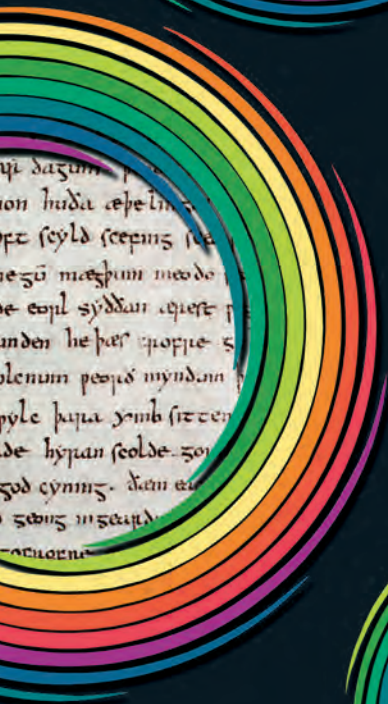 dagum
non huða æþelin
oft scyld scefing sce
negū mægþum meodo
de eorl syððan ærest
unden he þæs frofre g
olcnum ƿeorð myndum
ƿylc þara ymb sitten
lde hyran scolde go
god cyning. ðæm
geong ingeardu